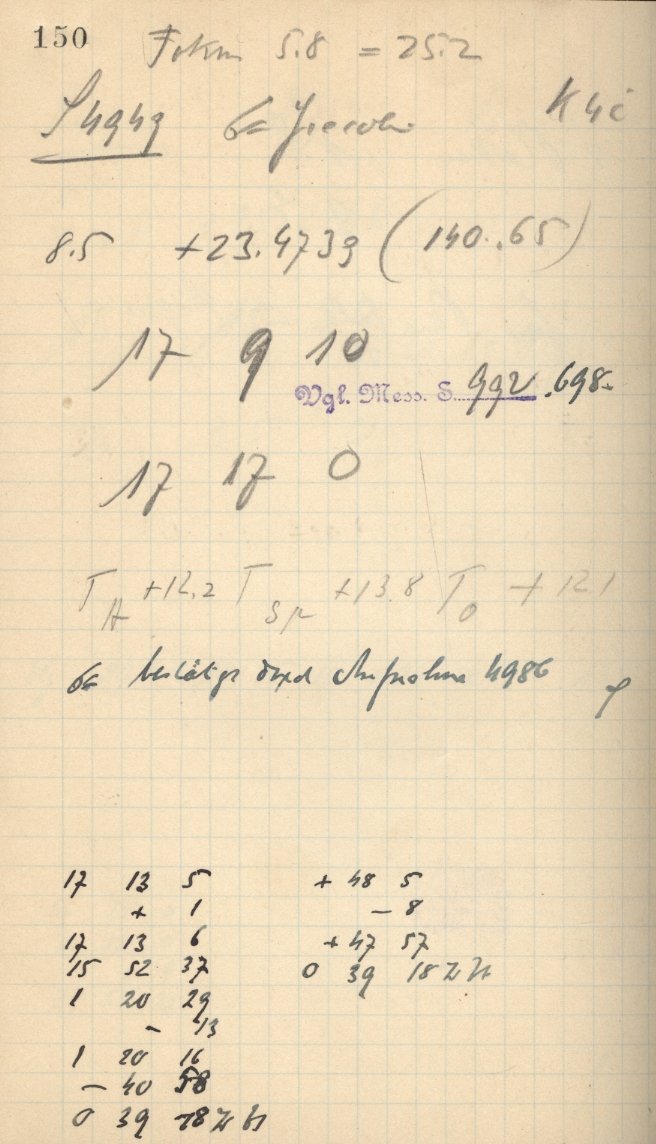 150
5.8 = 25.2
S 4949
8.5 +23.4739 (140.65)
17 9 10
Vgl. Mess. S. 992.698.
17 17 0
T A +12.2 T Sp +13.8 T O +12.1
bestätigt durch Aufnahme 4986
17 13 5 + 48 5
+ 1 - 8
17 13 6 + 47 57
15 52 37 0 39 18
1 20 29
- 13
1 20 16
- 40 58
0 39 18